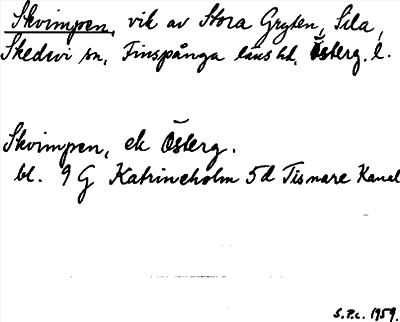 Skvimpen, vik av Stora Gryten, Sila,
Skedevi sn, Finspånga läns hd, Österg. l.
Skvimpen, ek Österg.
bl. 9 G Katrineholm 5d Tisnare Kanal
S.P.c. 1959.